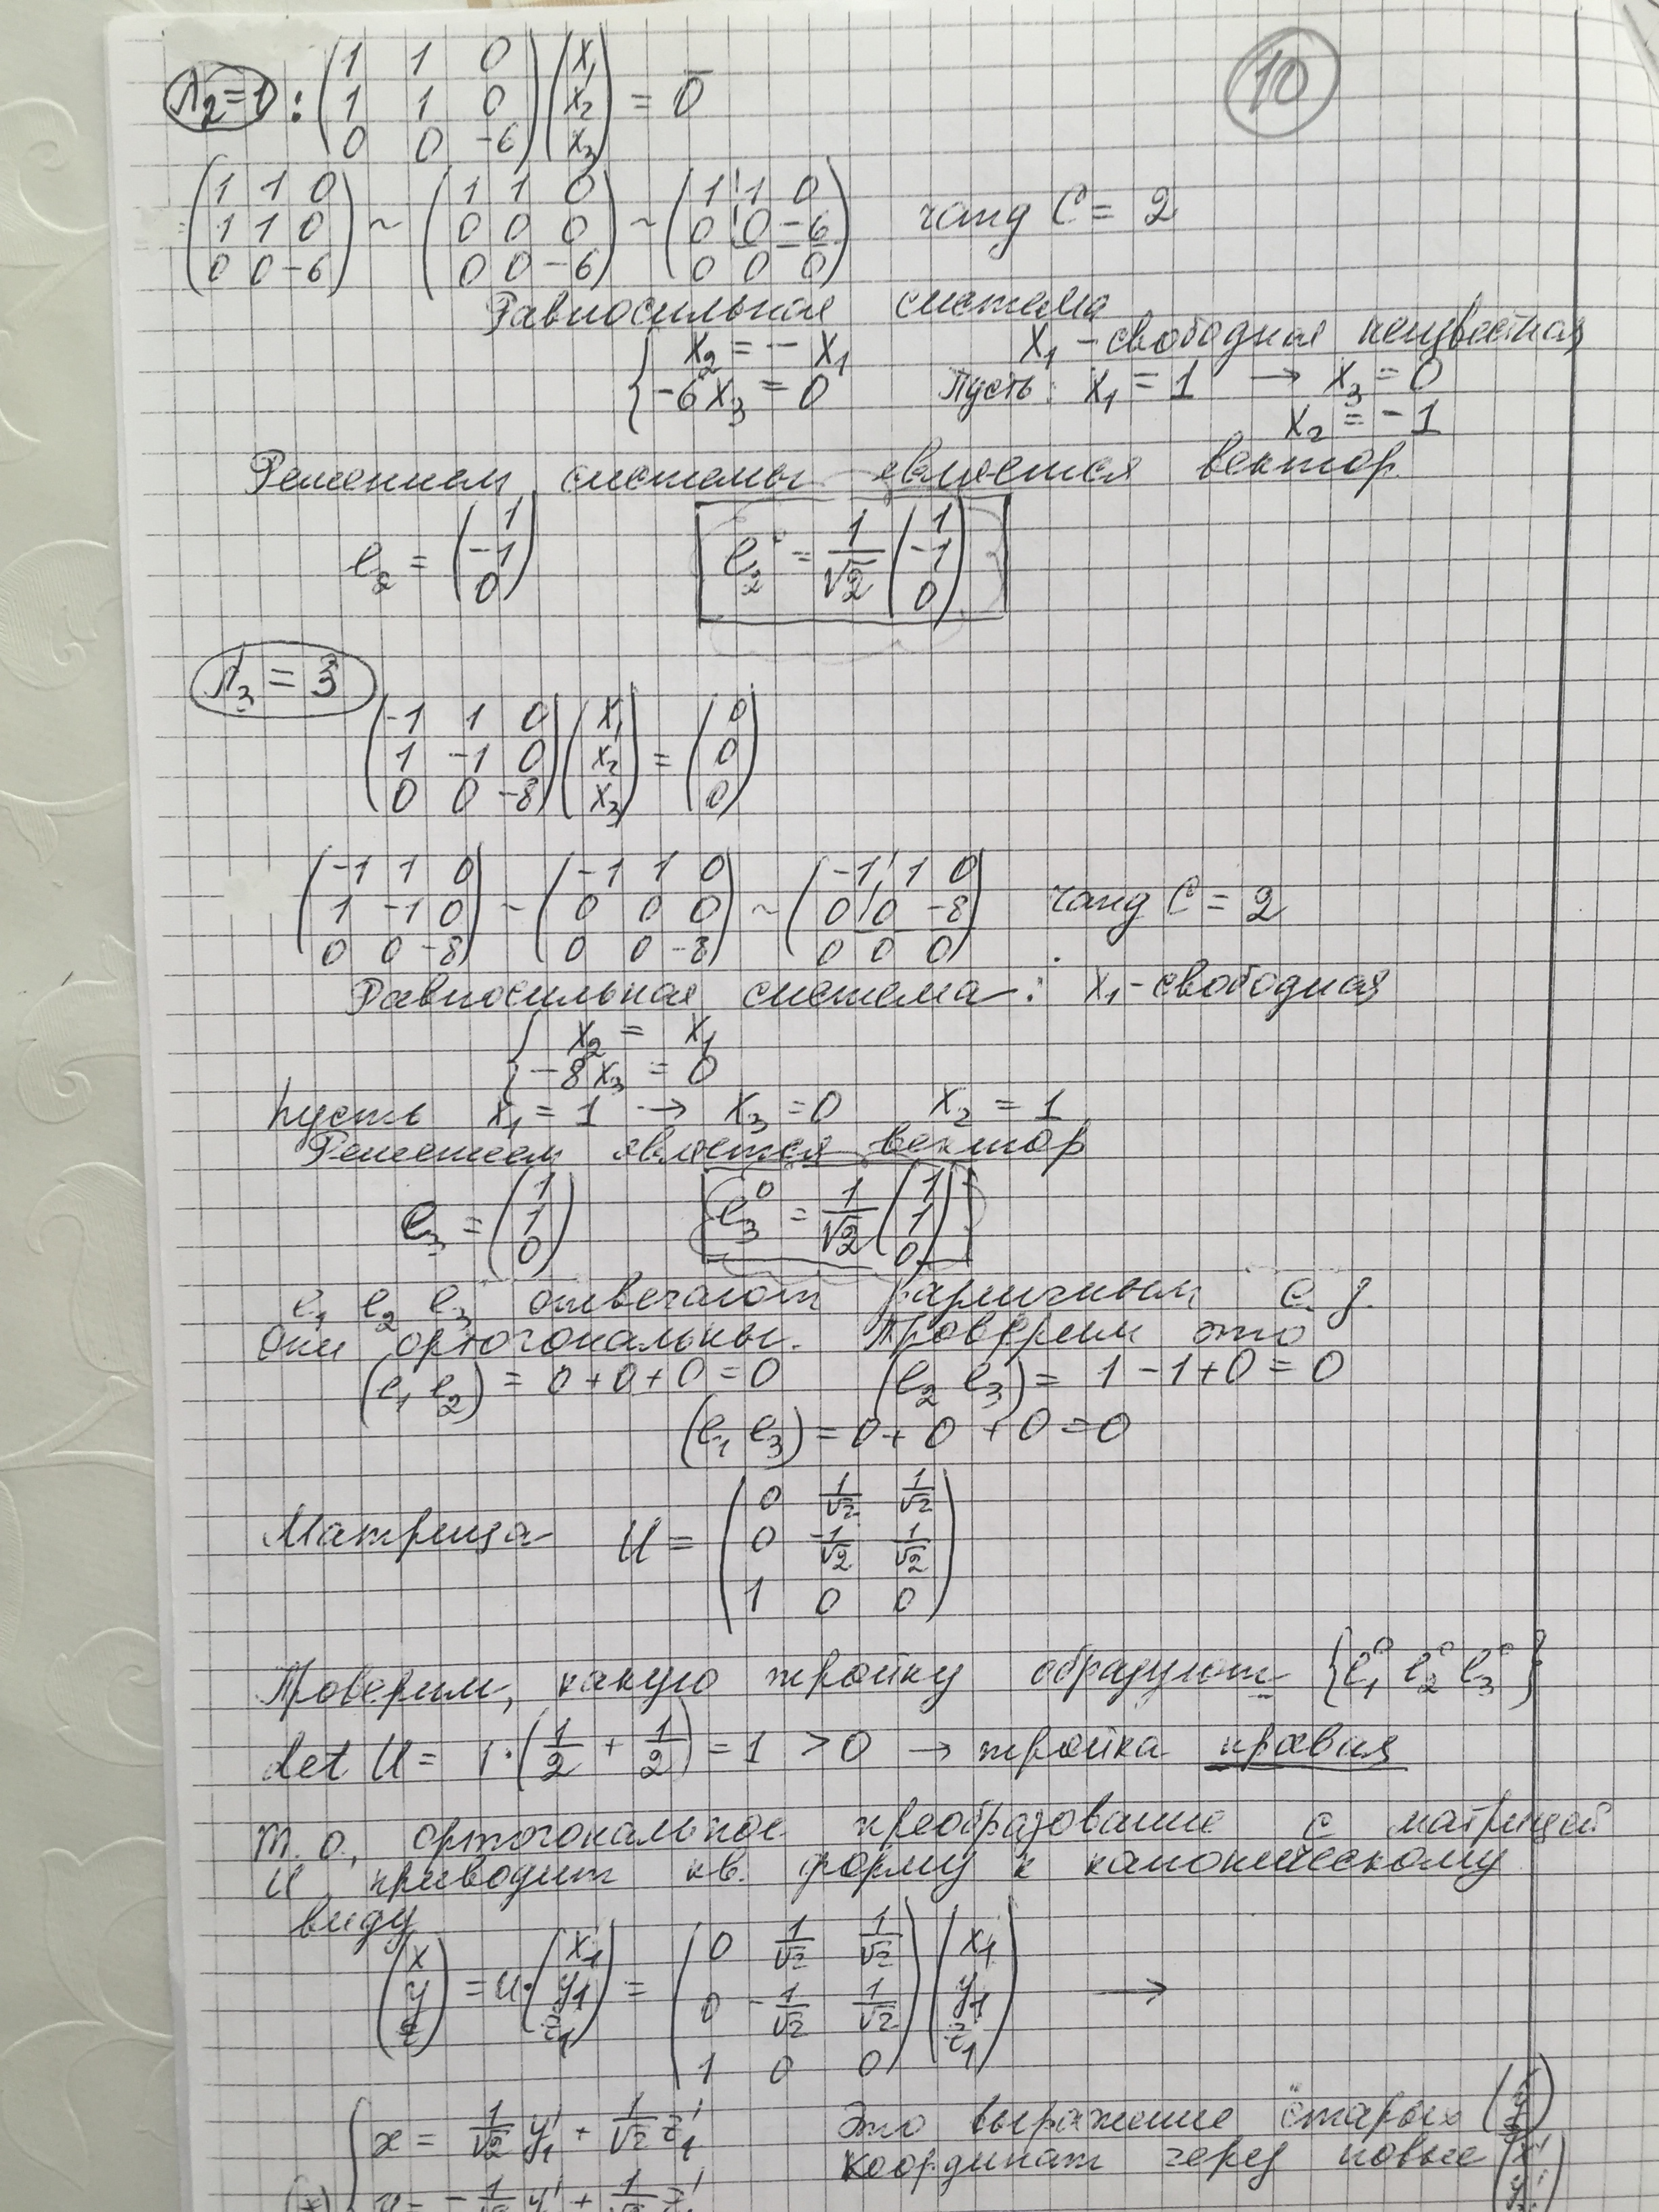 10
λ₂=1 : (1 1 0; 1 1 0; 0 0 -6) (x₁; x₂; x₃) = 0̄
(1 1 0; 1 1 0; 0 0 -6) ~ (1 1 0; 0 0 0; 0 0 -6) ~ (1 1 0; 0 0 -6; 0 0 0) rang C = 2
Равносильная система
{ x₂ = - x₁ x₁ - свободная неизвестная
-6x₃ = 0 Пусть: x₁ = 1 → x₃ = 0
x₂ = -1
Решением системы является вектор
e₂ = (1; -1; 0) e₂⁰ = 1/√2 (1; -1; 0)
λ₃ = 3
(-1 1 0; 1 -1 0; 0 0 -8) (x₁; x₂; x₃) = (0; 0; 0)
(-1 1 0; 1 -1 0; 0 0 -8) ~ (-1 1 0; 0 0 0; 0 0 -8) ~ (-1 1 0; 0 0 -8; 0 0 0) rang C = 2
Равносильная система: x₁ - свободная
{ x₂ = x₁
-8x₃ = 0
Пусть x₁ = 1 → x₃ = 0 x₂ = 1
Решением является вектор
e₃ = (1; 1; 0) e₃⁰ = 1/√2 (1; 1; 0)
e₁ e₂ e₃ отвечают различным с. з.
Они ортогональны. Проверим это
(e₁ e₂) = 0+0+0 = 0 (e₂ e₃) = 1-1+0 = 0
(e₁ e₃) = 0+0+0 = 0
Матрица U = (0 1/√2 1/√2; 0 -1/√2 1/√2; 1 0 0)
Проверим, какую тройку образуют {e₁⁰ e₂⁰ e₃⁰}
det U = 1·(1/2 + 1/2) = 1 > 0 → тройка правая
Т. о., ортогональное преобразование с матрицей
U приводит кв. форму к каноническому
виду
(x; y; z) = U·(x₁; y₁; z₁) = (0 1/√2 1/√2; 0 -1/√2 1/√2; 1 0 0) (x₁; y₁; z₁) →
{ x = 1/√2 y₁' + 1/√2 z₁' Это выражение "старых
y = -1/√2 y₁' + 1/√2 z₁' координат через новые